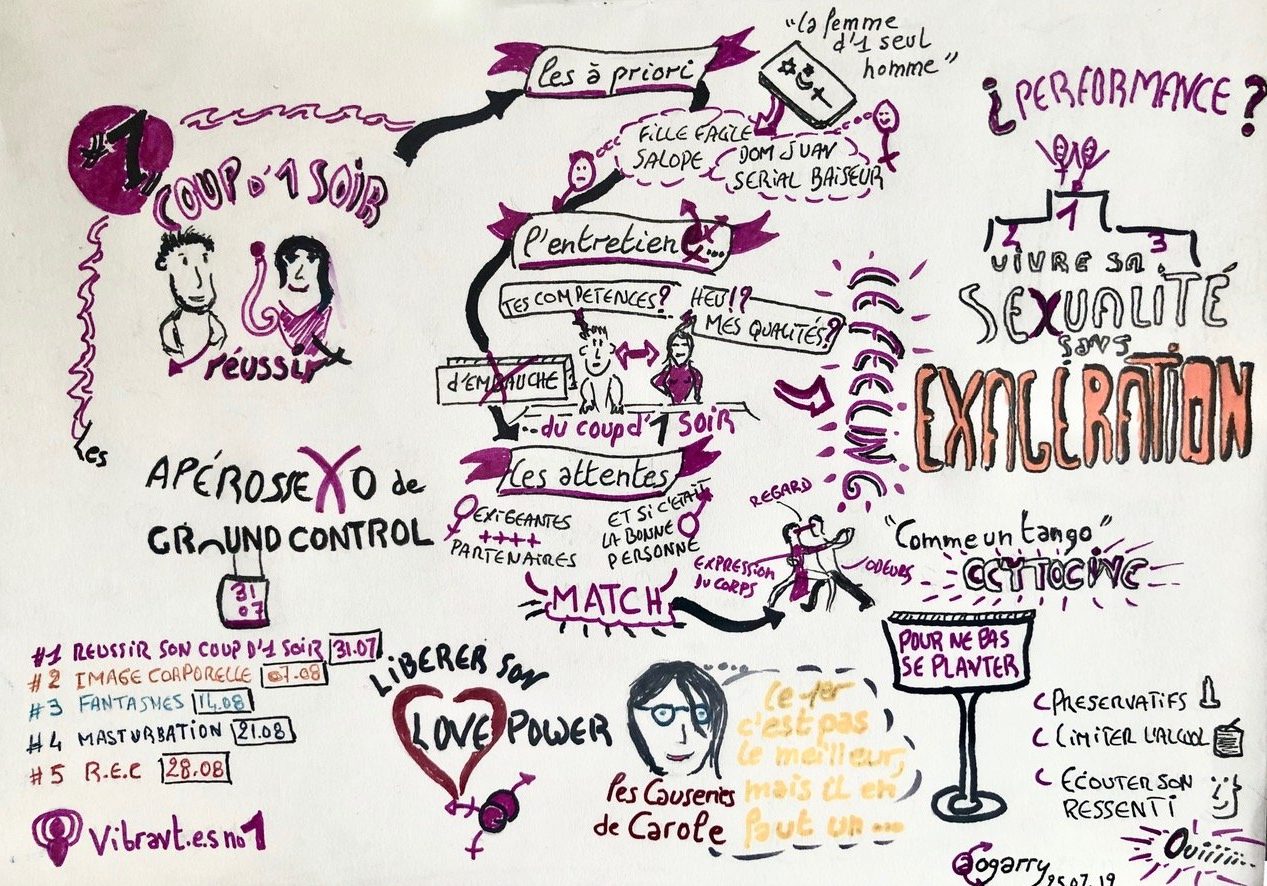 #1
COUP D'1 SOIR
réussir
les
APÉROSSEXO de
GROUND CONTROL
31
07
#1 REUSSIR SON COUP D'1 SOIR 31.07
#2 IMAGE CORPORELLE 07.08
#3 FANTASMES 14.08
#4 MASTURBATION 21.08
#5 R.E.C 28.08
Vibrant.e.s no1
les à priori
"la femme
d'1 seul
homme"
FILLE FACILE
SALOPE
DOM JUAN
SERIAL BAISEUR
l'entretien
TES COMPETENCES?
HEU!?
MES QUALITÉS?
d'EMBAUCHE
...du coup d'1 SOIR
les attentes
EXIGEANTES
++++
PARTENAIRES
ET SI C'ÉTAIT
LA BONNE
PERSONNE
MATCH
LE FEELING
REGARD
EXPRESSION
DU CORPS
ODEURS
"Comme un tango"
OCYTOCINE
¿PERFORMANCE?
1
2
3
VIVRE SA
SEXUALITÉ
SANS
EXAGÉRATION
LIBERER SON
LOVE POWER
les Causeries
de Carole
Le 1er
c'est pas
le meilleur,
mais il en
faut un...
POUR NE PAS
SE PLANTER
PRESERVATIFS
LIMITER L'ALCOOL
ECOUTER SON
RESSENTI
Ouiiiii...
aogarry
25.07.19